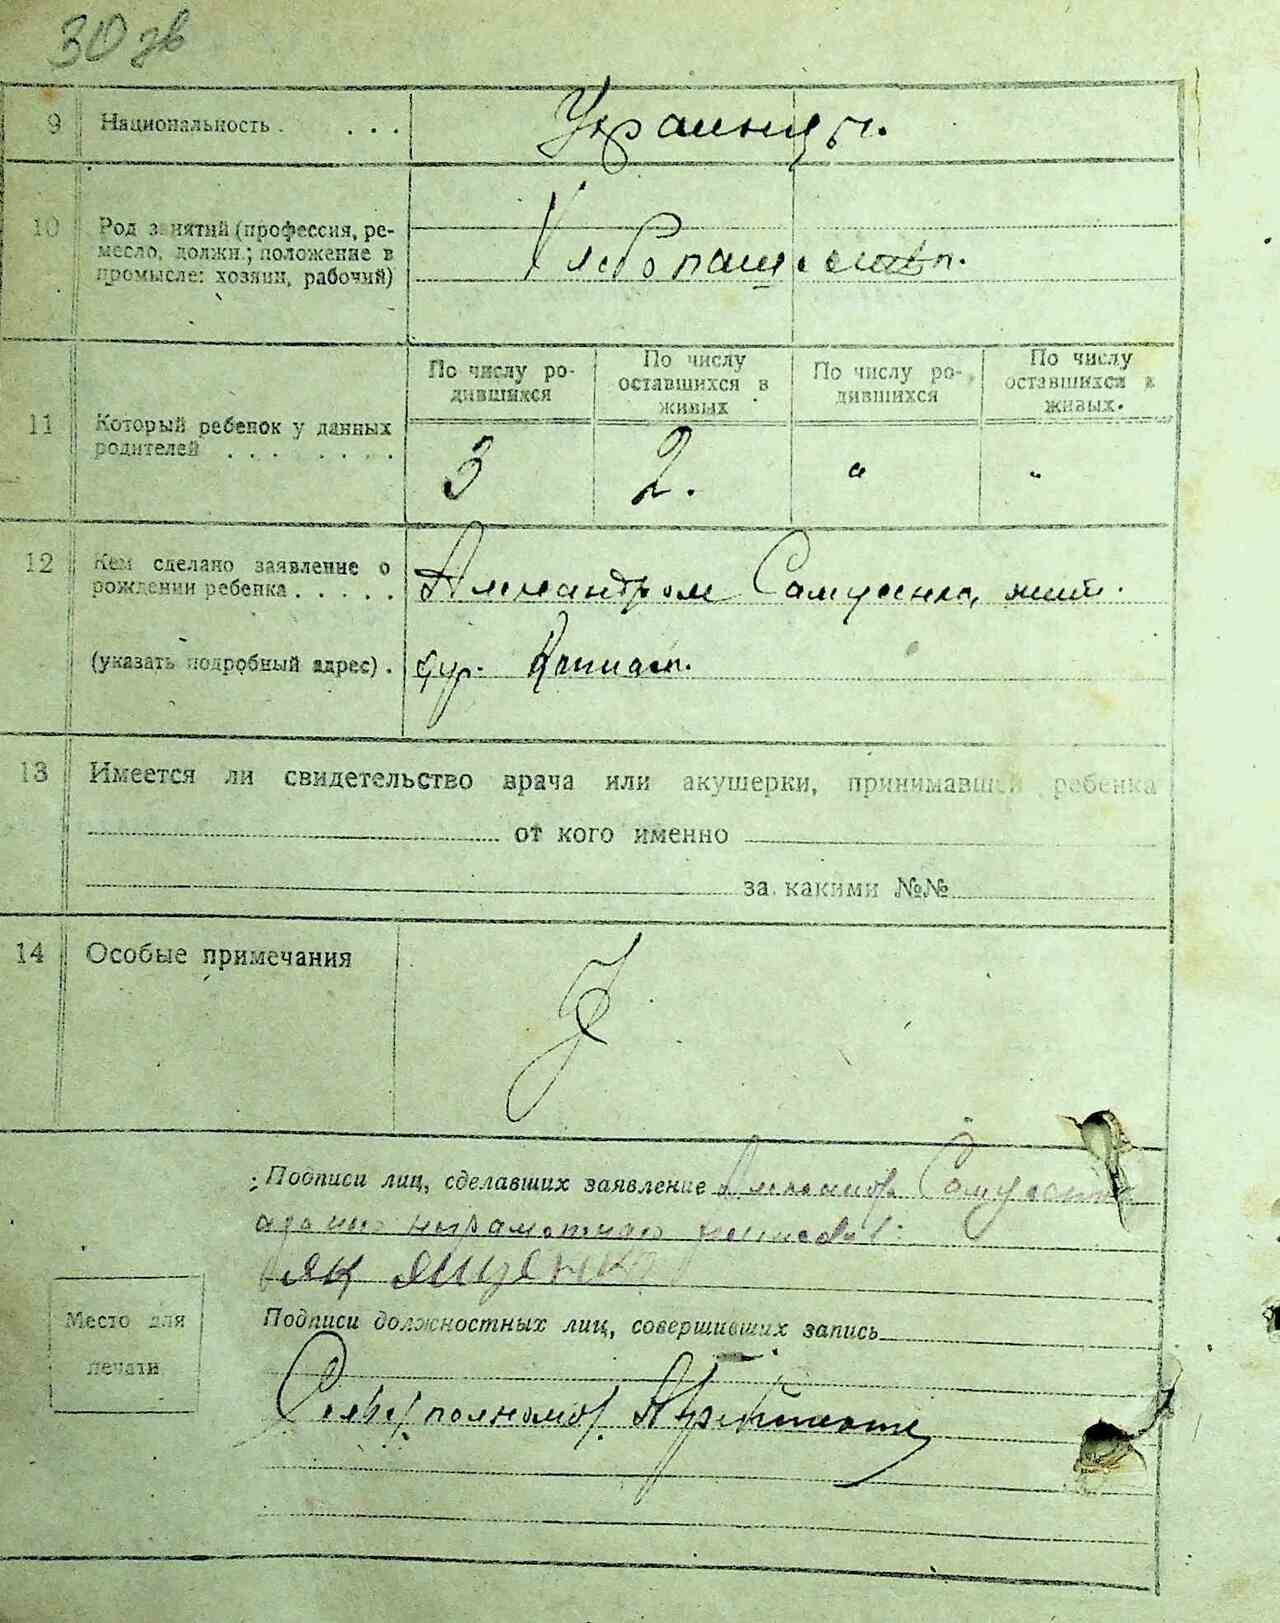 30 зв
9 Национальность . . . .
Украинцы.
10 Род занятий (профессия, ре-
месло, должн.; положение в
промысле: хозяин, рабочий)
Хлебопашество.
11 Который ребенок у данных
родителей . . . . . . .
По числу ро-
дившихся
По числу
оставшихся в
живых
По числу ро-
дившихся
По числу
оставшихся в
живых.
3 2. " "
12 Кем сделано заявление о
рождении ребенка . . . . .
Александром Самусенко, жит.
(указать подробный адрес) .
13 Имеется ли свидетельство врача или акушерки, принимавшей ребенка
от кого именно
за какими №№
14 Особые примечания
Подписи лиц, сделавших заявление Александр Самусенко
а за него неграмотного расписался:
Ященко
Место для
печати
Подписи должностных лиц, совершивших запись